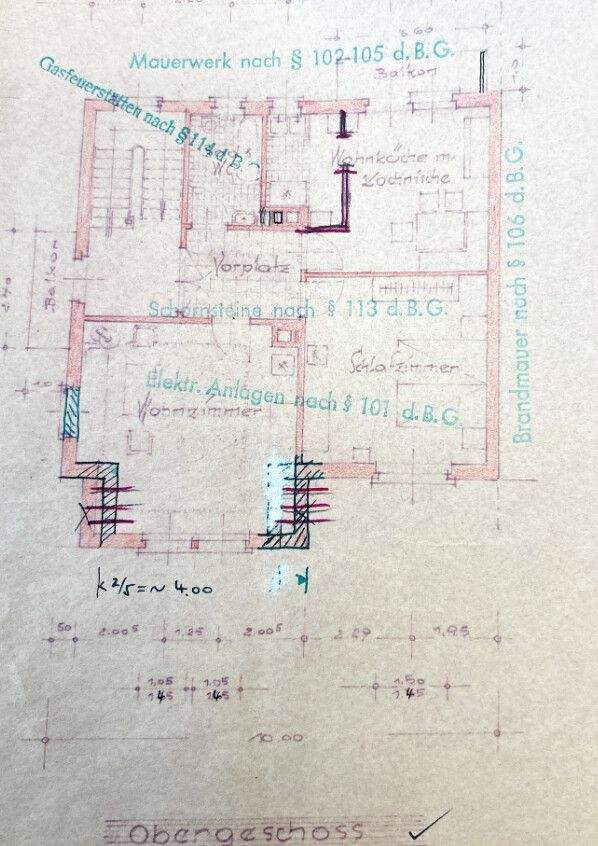 8.60
Mauerwerk nach § 102-105 d. B. G.
Balkon
Gasfeuerstätten nach § 114 d. B.
Wohnküche m.
Kochnische
WC
Brandmauer nach § 106 d. B. G.
Vorplatz
Balkon
Schornsteine nach § 113 d. B. G.
Schlafzimmer
Elektr. Anlagen nach § 101 d. B. G.
Wohnzimmer
K 2/5 = ~ 4.00
50 2.00⁵ 1.25 2.00⁵ 2.29 1.95
1.05 1.05 1.50
1.45 1.45 1.45
10.00
Obergeschoss